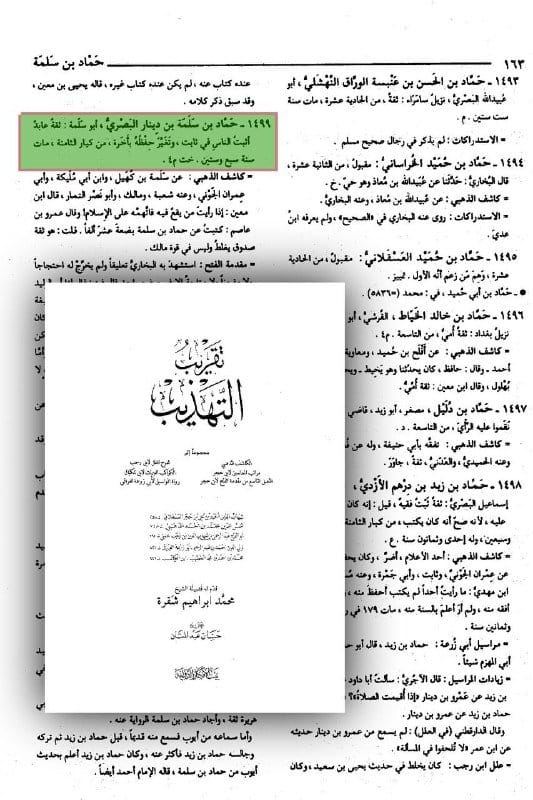 ١٦٣
حَمّاد بن سَلَمَة
١٤٩٣ - حَمّاد بن الحَسن بن عَنْبسة الورّاق النَّهْشَليُّ، أبو
عُبيدالله البَصْريُّ، نَزيلُ سامَرّاء: ثقةٌ، من الحادية عشرة، مات سنة
ست ستين. م.
= الاستدراكات: لم يذكر في رجال صحيح مسلم.
١٤٩٤ - حَمّاد بن حُمَيد الخُراسانيُّ: مقبولٌ، من الثانية عشرة،
قال البُخاريُّ: حَدَّثنا عن عُبيدالله بن مُعاذ وهو حيٌّ. خ.
= كاشف الذهبي: عن عُبيدالله بن مُعاذ، وعنه البخاري.
= الاستدراكات: روى عنه البخاري في «الصحيح»، ولم يعرفه ابنُ
عديّ.
١٤٩٥ - حَمّاد بن حُمَيد العَسْقَلانيُّ: مقبولٌ، من الحادية
عشرة، وَهِمَ مَن زعَم أنَّه الأول. تمييز.
● ـ حَمّاد بن أبي حُميد، في: محمد (=٥٨٣٦).
١٤٩٦ - حَمّاد بن خالد الخَيّاط، القُرشيُّ، أبو
نزيلُ بغداد: ثقةٌ أُميٌّ، من التاسعة. م٤.
= كاشف الذهبي: عن أفْلَح بن حُميد، ومعاوية
أحمد - وقال: حافظ، كان يحدّثنا وهو يَخيط - ويحيى
بُهلول، وقال ابن معين: ثقة أُمِّيٌّ.
١٤٩٧ - حَمّاد بن دُلَيْل، مصغر، أبو زيد، قاضي
نَقَموا عليه الرَّأيَ، من التاسعة. د.
= كاشف الذهبي: تفقّه بأبي حنيفة، وله عن
وعنه الحميديُّ، والعَدَنيُّ، ثقةٌ، جاوَرَ.
١٤٩٨ - حَمّاد بن زيد بن دِرْهم الأزْديُّ،
إسماعيل البَصْريُّ: ثقةٌ ثَبْتٌ فقيهٌ، قيل: إنه كان
عليه، لأنه صحّ أنه كان يكتب، من كبار الثامنة
وسبعين، وله إحدى وثمانون سنة. ع.
= كاشف الذهبي: أحد الأعلام، أضرّ، وكان يحفظ
عن عِمران الجَوْني، وثابت، وأبي جَمْرة، وعنه
ابن مهديّ: ما رأيتُ أحداً لم يكتب أحفظ منه،
أفقه منه، ولم أرَ أعلمَ بالسنة منه، مات ١٧٩ في
وثمانين سنة.
= مراسيل أبي زُرعة: حماد بن زيد، قال أبو
أبي المهزم شيئاً.
= زيادات المراسيل: قال الآجُرِّي: سألتُ أبا داود
بن زيد عن عَمْرو بن دينار «إذا أُقيمت الصلاة»؟
حماد بن زيد عن عمرو بن دينار.
= وقال الدارقطني (في العلل): لم يسمع من عمرو بن دينار حديثه
عن ابن عمر «لا تُلحفوا في المسألة».
= علل ابن رجب: كان يخلط في حديث يحيى بن سعيد، وكان
عنده كتاب عنه، لم يكن عنده كتاب غيره، قاله يحيى بن معين،
وقد سبق ذكر كلامه.
١٤٩٩ - حَمّاد بن سَلَمَة بن دينار البَصْريُّ، أبو سَلَمة: ثقةٌ عابدٌ
أثبتُ الناس في ثابت، وتَغَيَّرَ حِفْظُه بأَخَرة، من كبار الثامنة، مات
سنة سبع وستين. خت م٤.
= كاشف الذهبي: عن سَلَمة بن كُهَيل، وابن أبي مُلَيكة، وأبي
عِمران الجَوْني، وعنه شعبة، ومالك، وأبو نَصْر التمار، قال ابن
معين: إذا رأيتَ من يقع فيه فاتَّهِمْه على الإسلام! وقال عمرو بن
عاصم: كتبت عن حماد بن سلمة بضعة عشر ألفاً. قلت: هو ثقة
صدوق يغلط وليس في قوة مالك.
= مقدمة الفتح: استشهد به البخاريُّ تعليقاً ولم يخرِّج له احتجاجاً
تقريب
التهذيب
محمد ابراهيم شقرة
حسان عبد المنان
بيت الأفكار الدولية
هريرة ثقة، وأجاد حماد بن سلمة الرواية عنه.
وأما سماعه من أيوب فسمع منه قديماً، قبل حماد بن زيد ثم تركه
وجالسه حماد بن زيد فأكثر عنه، وكان حماد بن زيد أعلم بحديث
أيوب من حماد بن سلمة، قاله الإمام أحمد أيضاً.